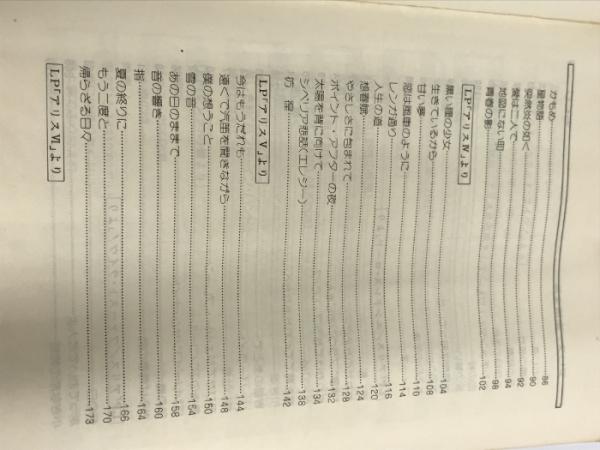 かもめ……86
星物語……90
突然炎の如く……92
愛は二人で……94
地図にない町……98
青春の影……102
LP「アリスⅣ」より
黒い瞳の少女……104
生きているから……108
甘い夢……110
恋は風車のように……114
レンガ通り……116
人生の道……120
想香館……124
やさしさに包まれて……128
ポイント・アフターの夜……132
太陽を背に向けて……134
シベリア悲話(エレジー)……138
坊望……142
LP「アリスⅤ」より
今はもうだれも……144
遠くで汽笛を聞きながら……148
僕の想うこと……150
雪の音……154
あの日のままで……158
音の響き……160
指……164
夏の終りに……166
もう二度と……170
帰らざる日々……173
LP「アリスⅥ」より